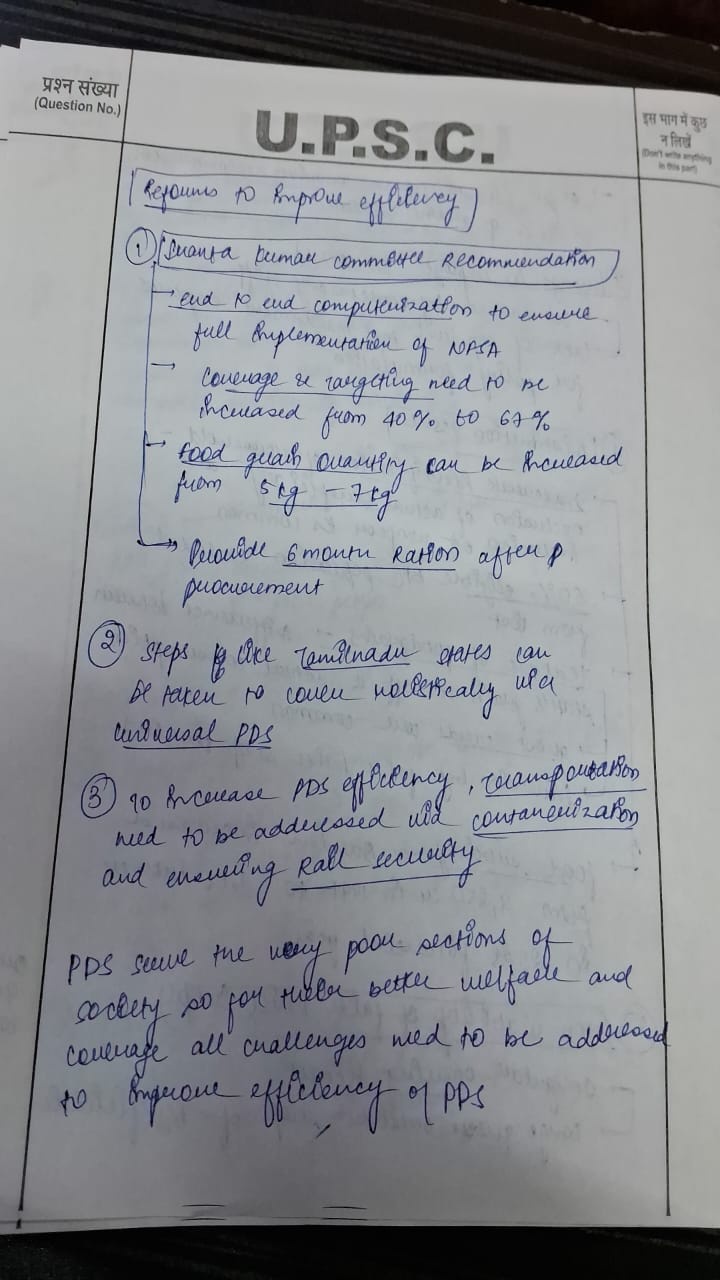 प्रश्न संख्या
(Question No.)
U.P.S.C.
इस भाग में कुछ
न लिखें
(Don't write anything
in this part)
Reforms to Improve efficiency
① Shanta Kumar committee Recommendation
→ end to end computerization to ensure
full Implementation of NFSA
→ Coverage & targeting need to be
increased from 40% to 67%
→ Food grain quantity can be increased
from 5kg - 7kg
→ Provide 6 month Ration after
procurement
② Steps like Tamilnadu states can
be taken to cover holistically via
universal PDS
③ To increase PDS efficiency, transportation
need to be addressed via containerization
and ensuring Rail security
PDS serve the very poor sections of
society so for their better welfare and
coverage all challenges need to be addressed
to improve efficiency of PDS